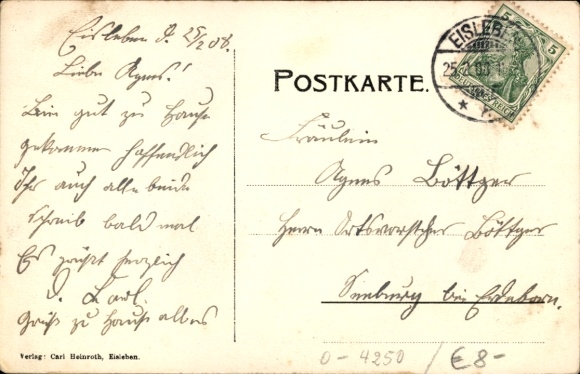 Eisleben d. 25/2 08.
Liebe Agnes!
Bin gut zu Hause
gekommen hoffendlich
Ihr auch alle beide
schreib bald mal
Es grüßt herzlich
d. Karl.
Grüß zu Hause alles
Verlag: Carl Heinroth, Eisleben.
POSTKARTE.
EISLEBEN
25.2.08
5 5
Fräulein
Agnes Böttger
Herrn Ortsvorsteher Böttger
Seeburg bei Erdeborn.
0-4250 / € 8-